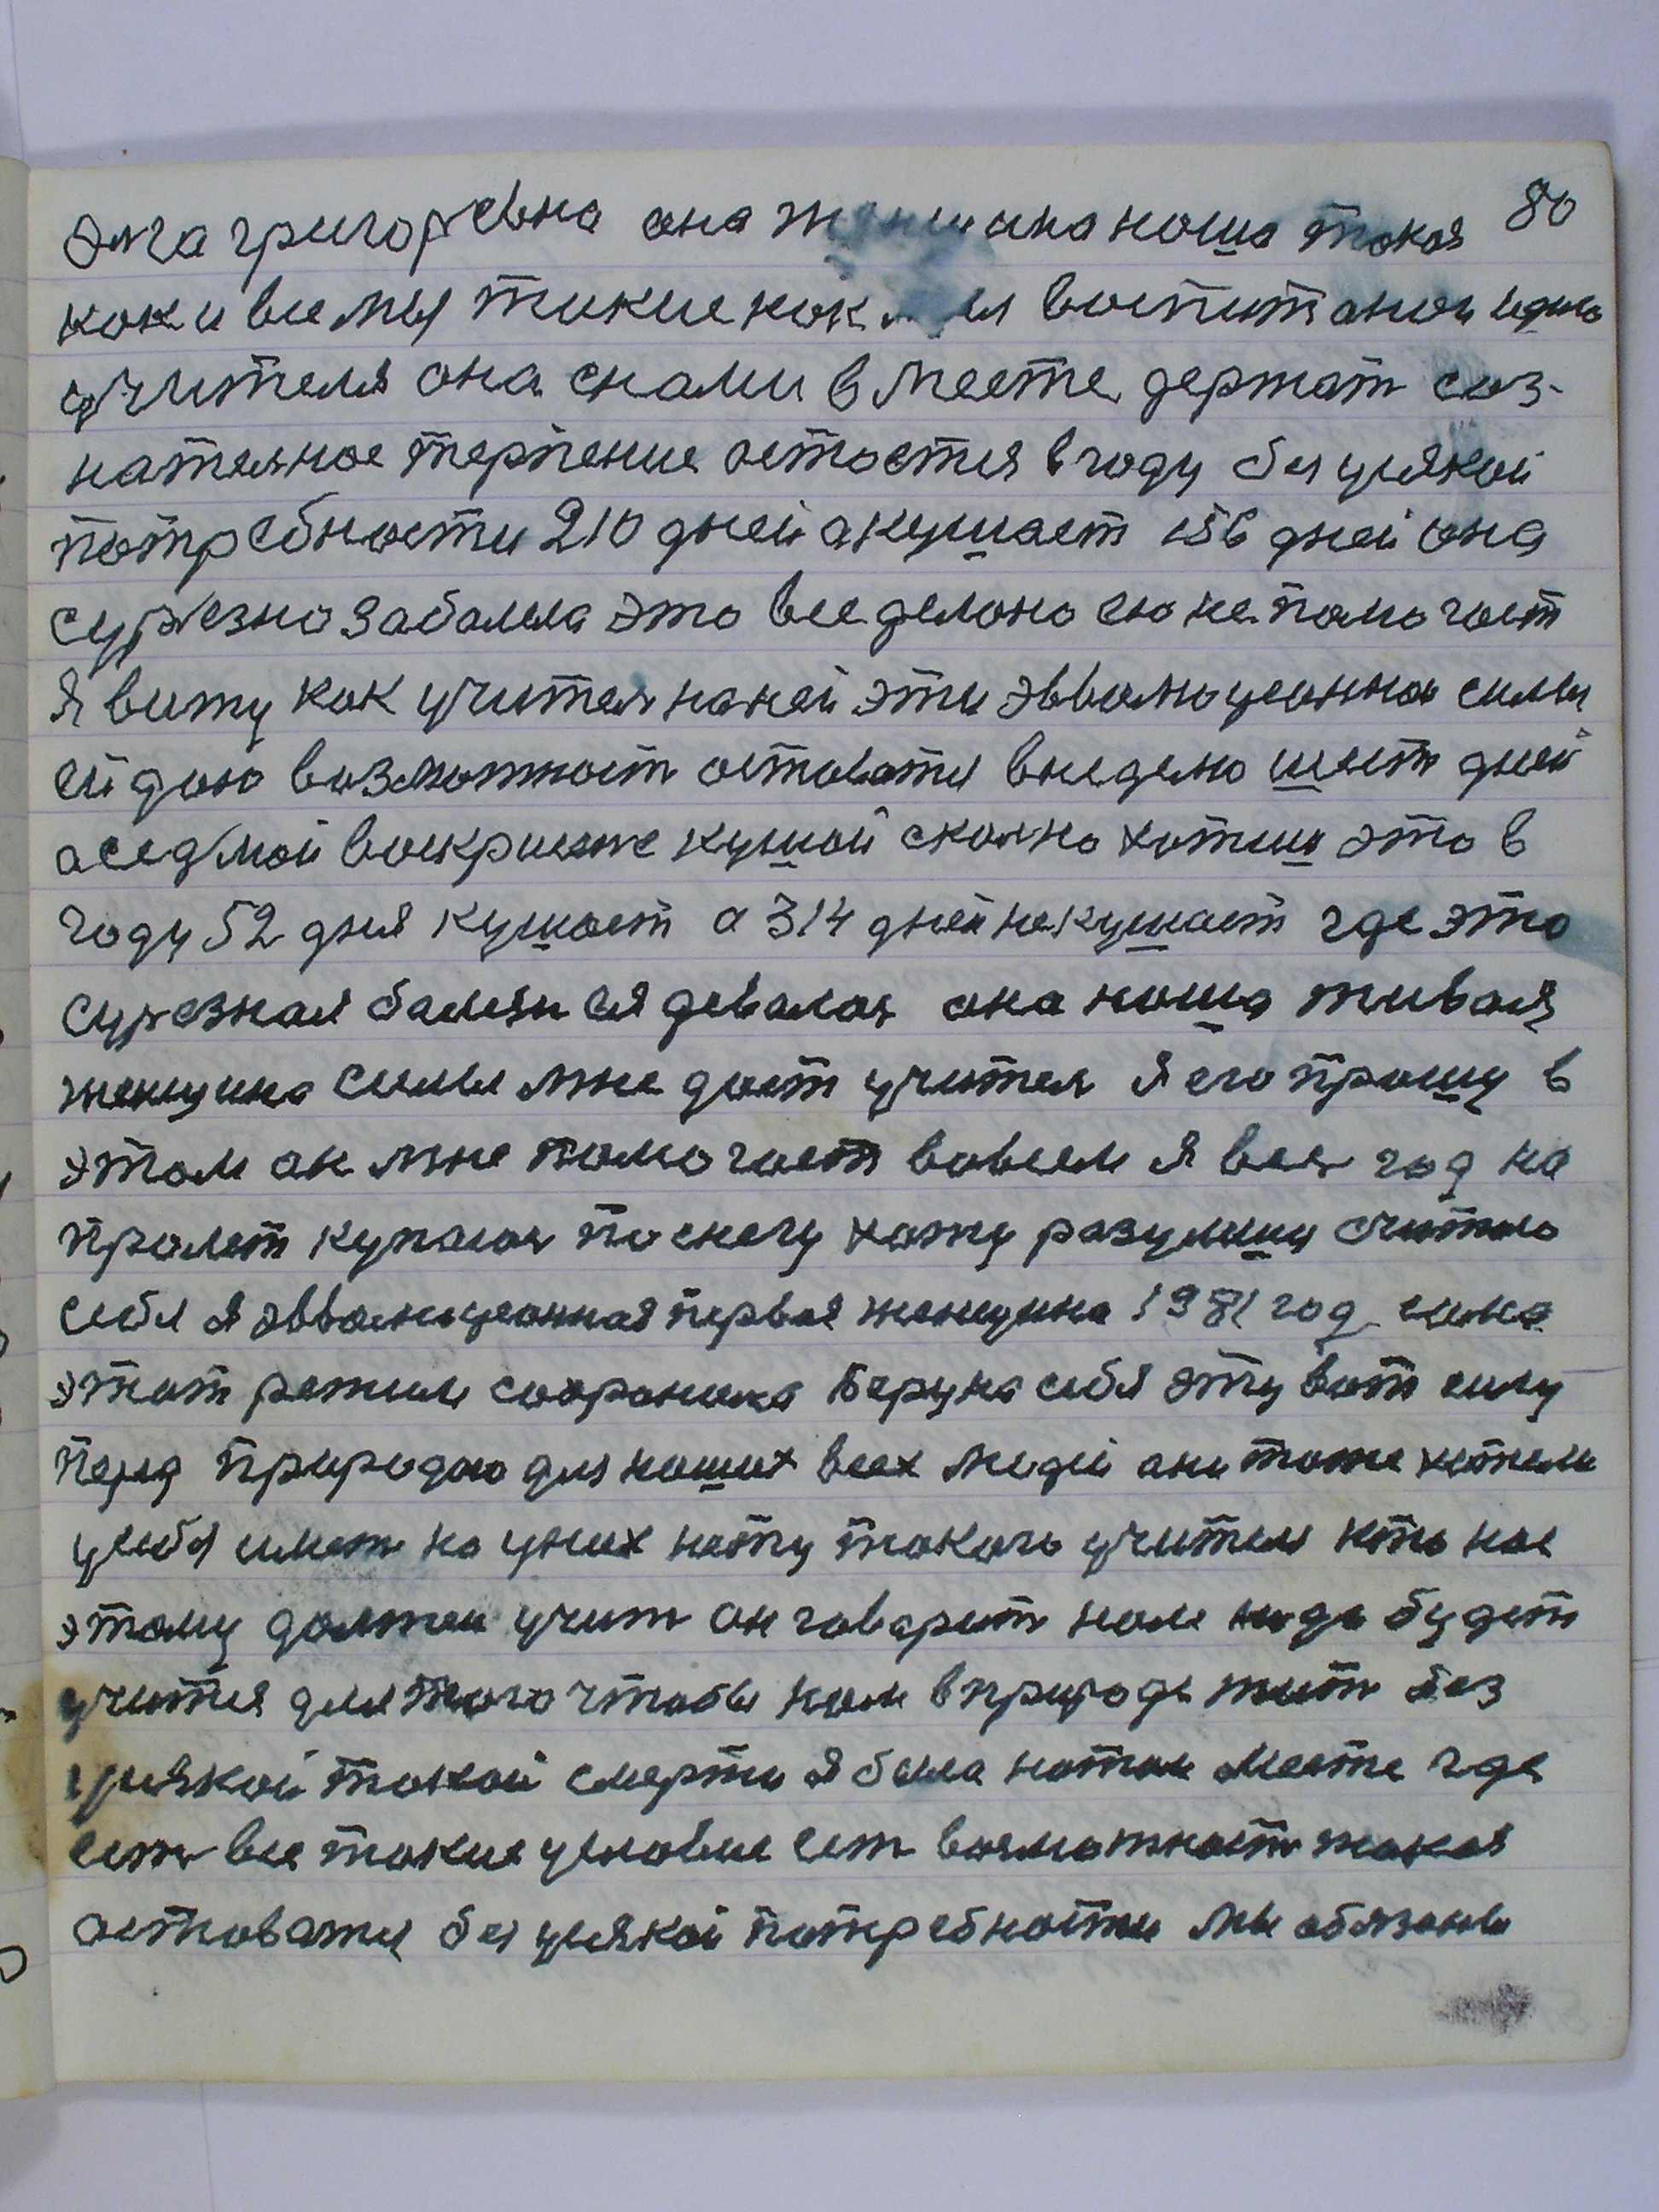 80
Олга григорьевна она женшина ноша токоя
кок и все мы такие кок мы воспитаной
учителя она снами вместе держат соз-
нателное терпение остоется вгоду без усякой
потребности 210 дней а кушает 156 дней она
сурьезно забалела это все делоно ею не помогоет
Я вижу кок учителя наней эти эвволюционное силы
ей дою возможност остоватся внеделю шест дней
аседмой воскрисение кушой сколко хотиш это в
году 52 дня кушоет а 314 дней не кушает где это
сурезная балезн ся девалас она ноша живоя
женщина силы мне дает учителя Я его прошу в
этом он мне помогоет вовсем я вес год на
пролет купаюс по снегу хожу разумишу считаю
себя Я эвволюционная первоя женщина 1981 год
этот режим сохронила беру на себя эту вот силу
перед природою для наших всех людей они тоже хотели
усебя имет но уних нету токого учителя кто нас
этому должен учит он говорит ном надо будет
учится для того чтобы ном вприроде жит без
усякой токой смерти Я была натом месте где
ест все токие условие ест возможност токоя
остоватся без усякой потребности мы обязоны